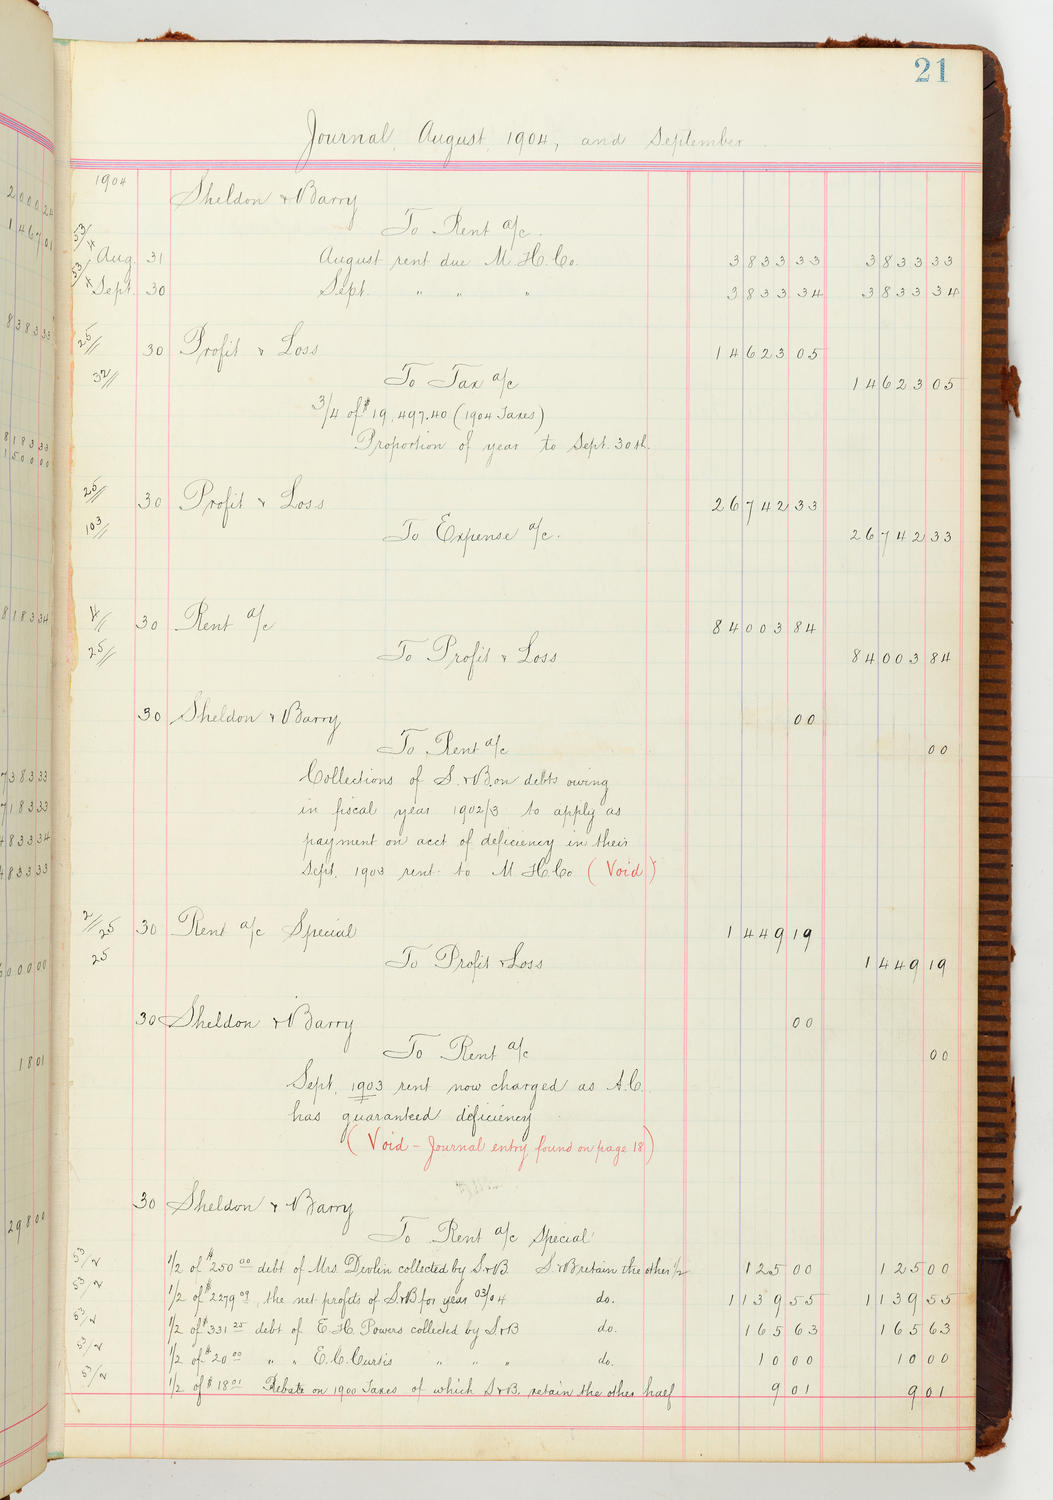 21
Journal, August, 1904, and September
1904
Sheldon & Barry
To Rent a/c.
53/4 Aug. 31 August rent due M. H. Co. 3833 33 3833 33
53/4 Sept. 30 Sept. " " " 3833 34 3833 34
25// 30 Profit & Loss 14623 05
32// To Tax a/c 14623 05
3/4 of $19,497.40 (1904 Taxes)
Proportion of year to Sept. 30th.
25// 30 Profit & Loss 26742 33
103// To Expense a/c. 26742 33
4// 30 Rent a/c 84003 84
25// To Profit & Loss 84003 84
30 Sheldon & Barry 00
To Rent a/c 00
Collections of S. & B. on debts owing
in fiscal year 1902/3 to apply as
payment on acct of deficiency in their
Sept. 1903 rent to M. H. Co (Void)
2//25 30 Rent a/c Special 1449 19
25 To Profit & Loss 1449 19
30 Sheldon & Barry 00
To Rent a/c 00
Sept. 1903 rent now charged as A. C.
has guaranteed deficiency
(Void - Journal entry found on page 18)
30 Sheldon & Barry
To Rent a/c Special
53/2 1/2 of $250 00 debt of Mrs. Devlin collected by S & B S & B retain the other 1/2 125 00 125 00
53/2 1/2 of $2279 09, the net profits of S & B for year 03/04 do. 1139 55 1139 55
53/2 1/2 of $331 25 debt of E. H. Powers collected by S & B do. 165 63 165 63
53/2 1/2 of $20 00 " " E. C. Curtis " " " do. 10 00 10 00
53/2 1/2 of $18 01 Rebate on 1900 Taxes of which S & B. retain the other half 9 01 9 01